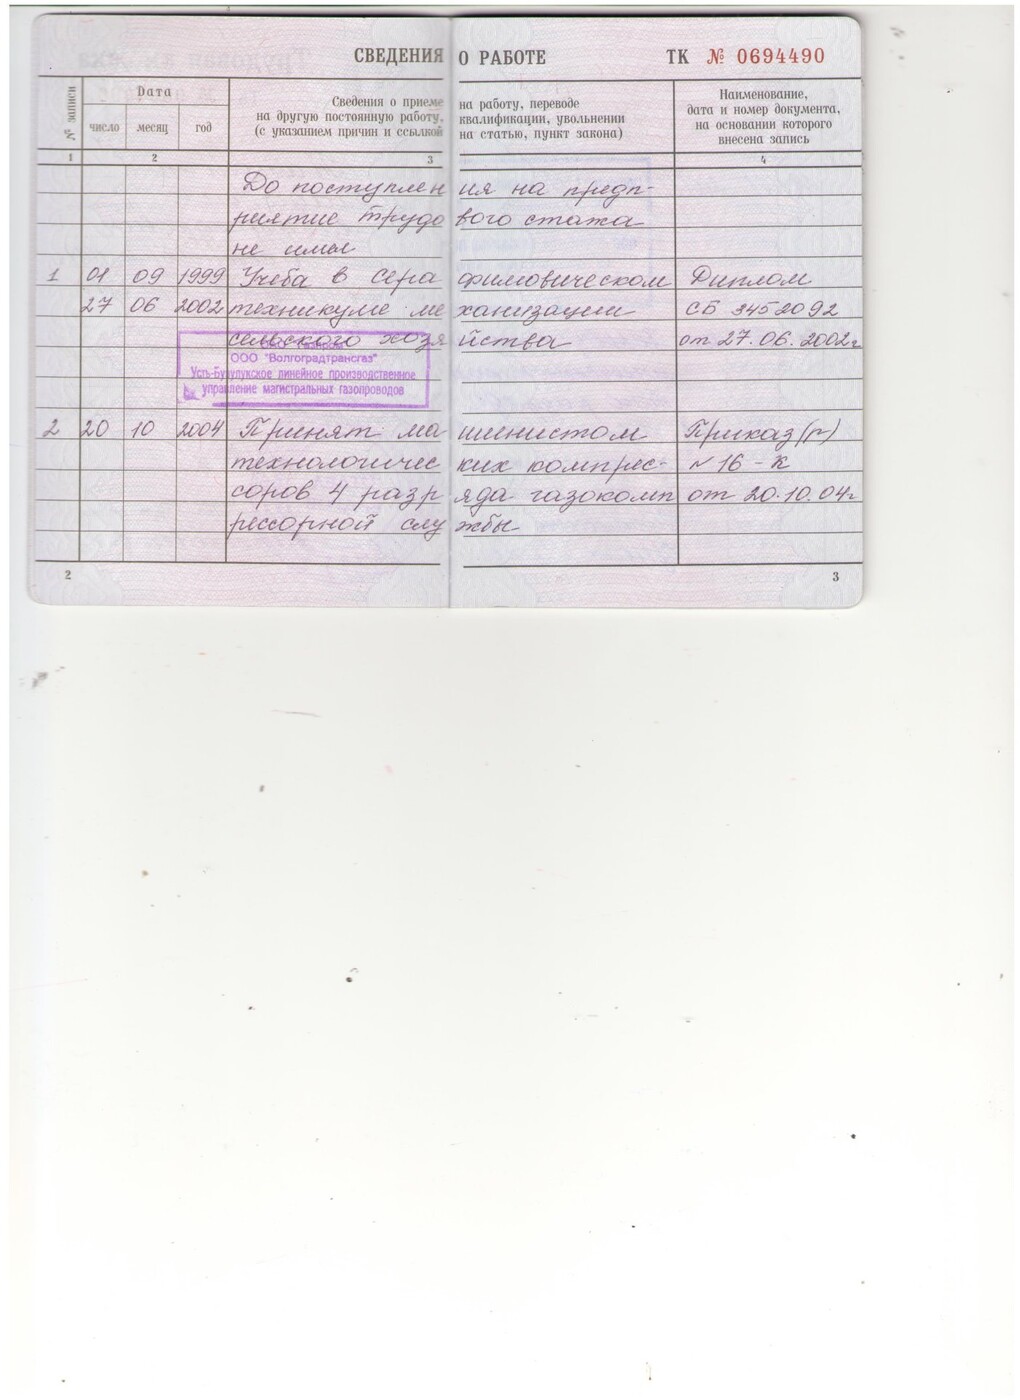 СВЕДЕНИЯ О РАБОТЕ ТК № 0694490
№ записи
Дата
число месяц год
Сведения о приеме на работу, переводе
на другую постоянную работу, квалификации, увольнении
(с указанием причин и ссылкой на статью, пункт закона)
Наименование,
дата и номер документа,
на основании которого
внесена запись
1 2 3 4
До поступления на предп-
риятие трудового стажа
не имел
1 01 09 1999 Учеба в Серафимовическом Диплом
27 06 2002 техникуме механизации СБ 3452092
сельского хозяйства от 27.06.2002г
ООО "Волгоградтрансгаз"
Усть-Бузулукское линейное производственное
управление магистральных газопроводов
2 20 10 2004 Принят машинистом Приказ (р)
технологических компрес- №16-К
соров 4 разрряда газокомп от 20.10.04г
рессорной службы
2 3